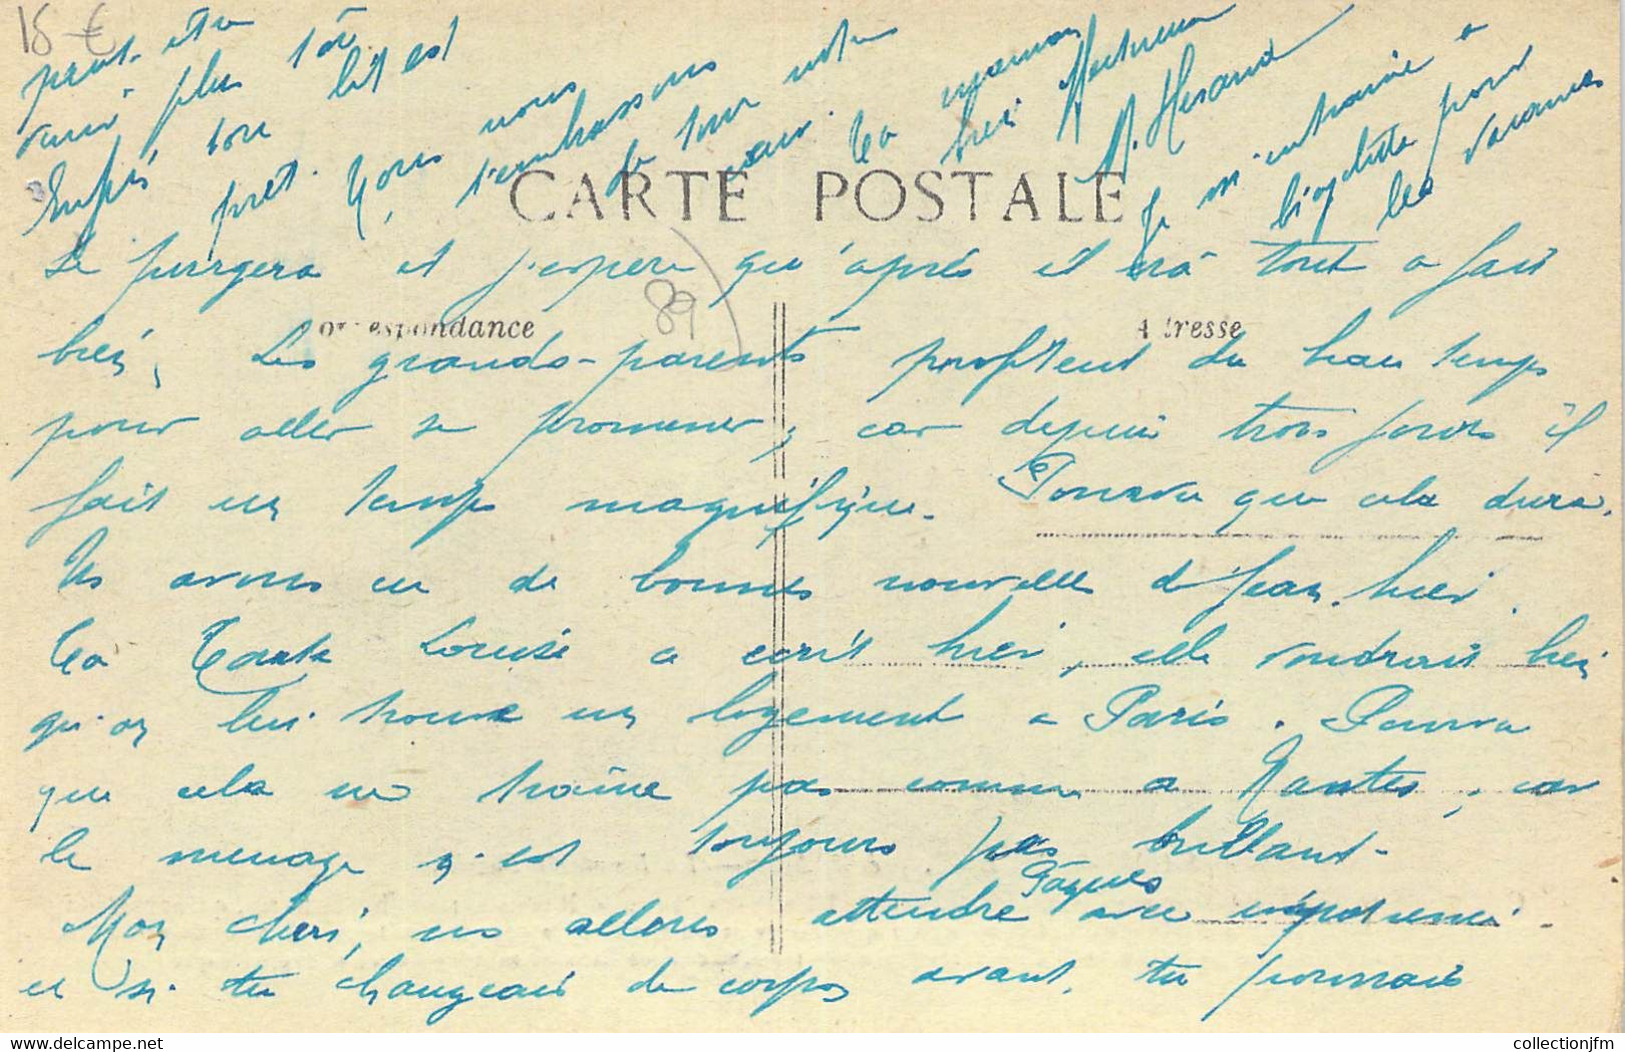 15 €
CARTE POSTALE
Correspondance
Adresse
89
le purgera et j'espère qu'après il sera tout a fait
bien, Les grands-parents profitent du beau temps
pour aller se promener, car depuis trois jours il
fait un temps magnifique. Pourvu que cela dure.
Ns avons eu de bonnes nouvelles d Jean hier.
Ta Tante Louise a écrit hier, elle voudrait bien
qu'on lui trouve un logement a Paris. Pourvu
que cela ne traîne pas comme a Nantes, car
le menage n'est toujours pas brillant.
Mon cheri, ns allons attendre Pâques avec impatience.
et si tu changeais de corps avant, tu pourrais
peut-etre
venir plus tôt
ton lit est
pret. Nous nous
t'embrassons
de tout notre
coeur. Ta maman
bien
Je m'entraine a
bicyclette pour
les vacances
collectionjfm